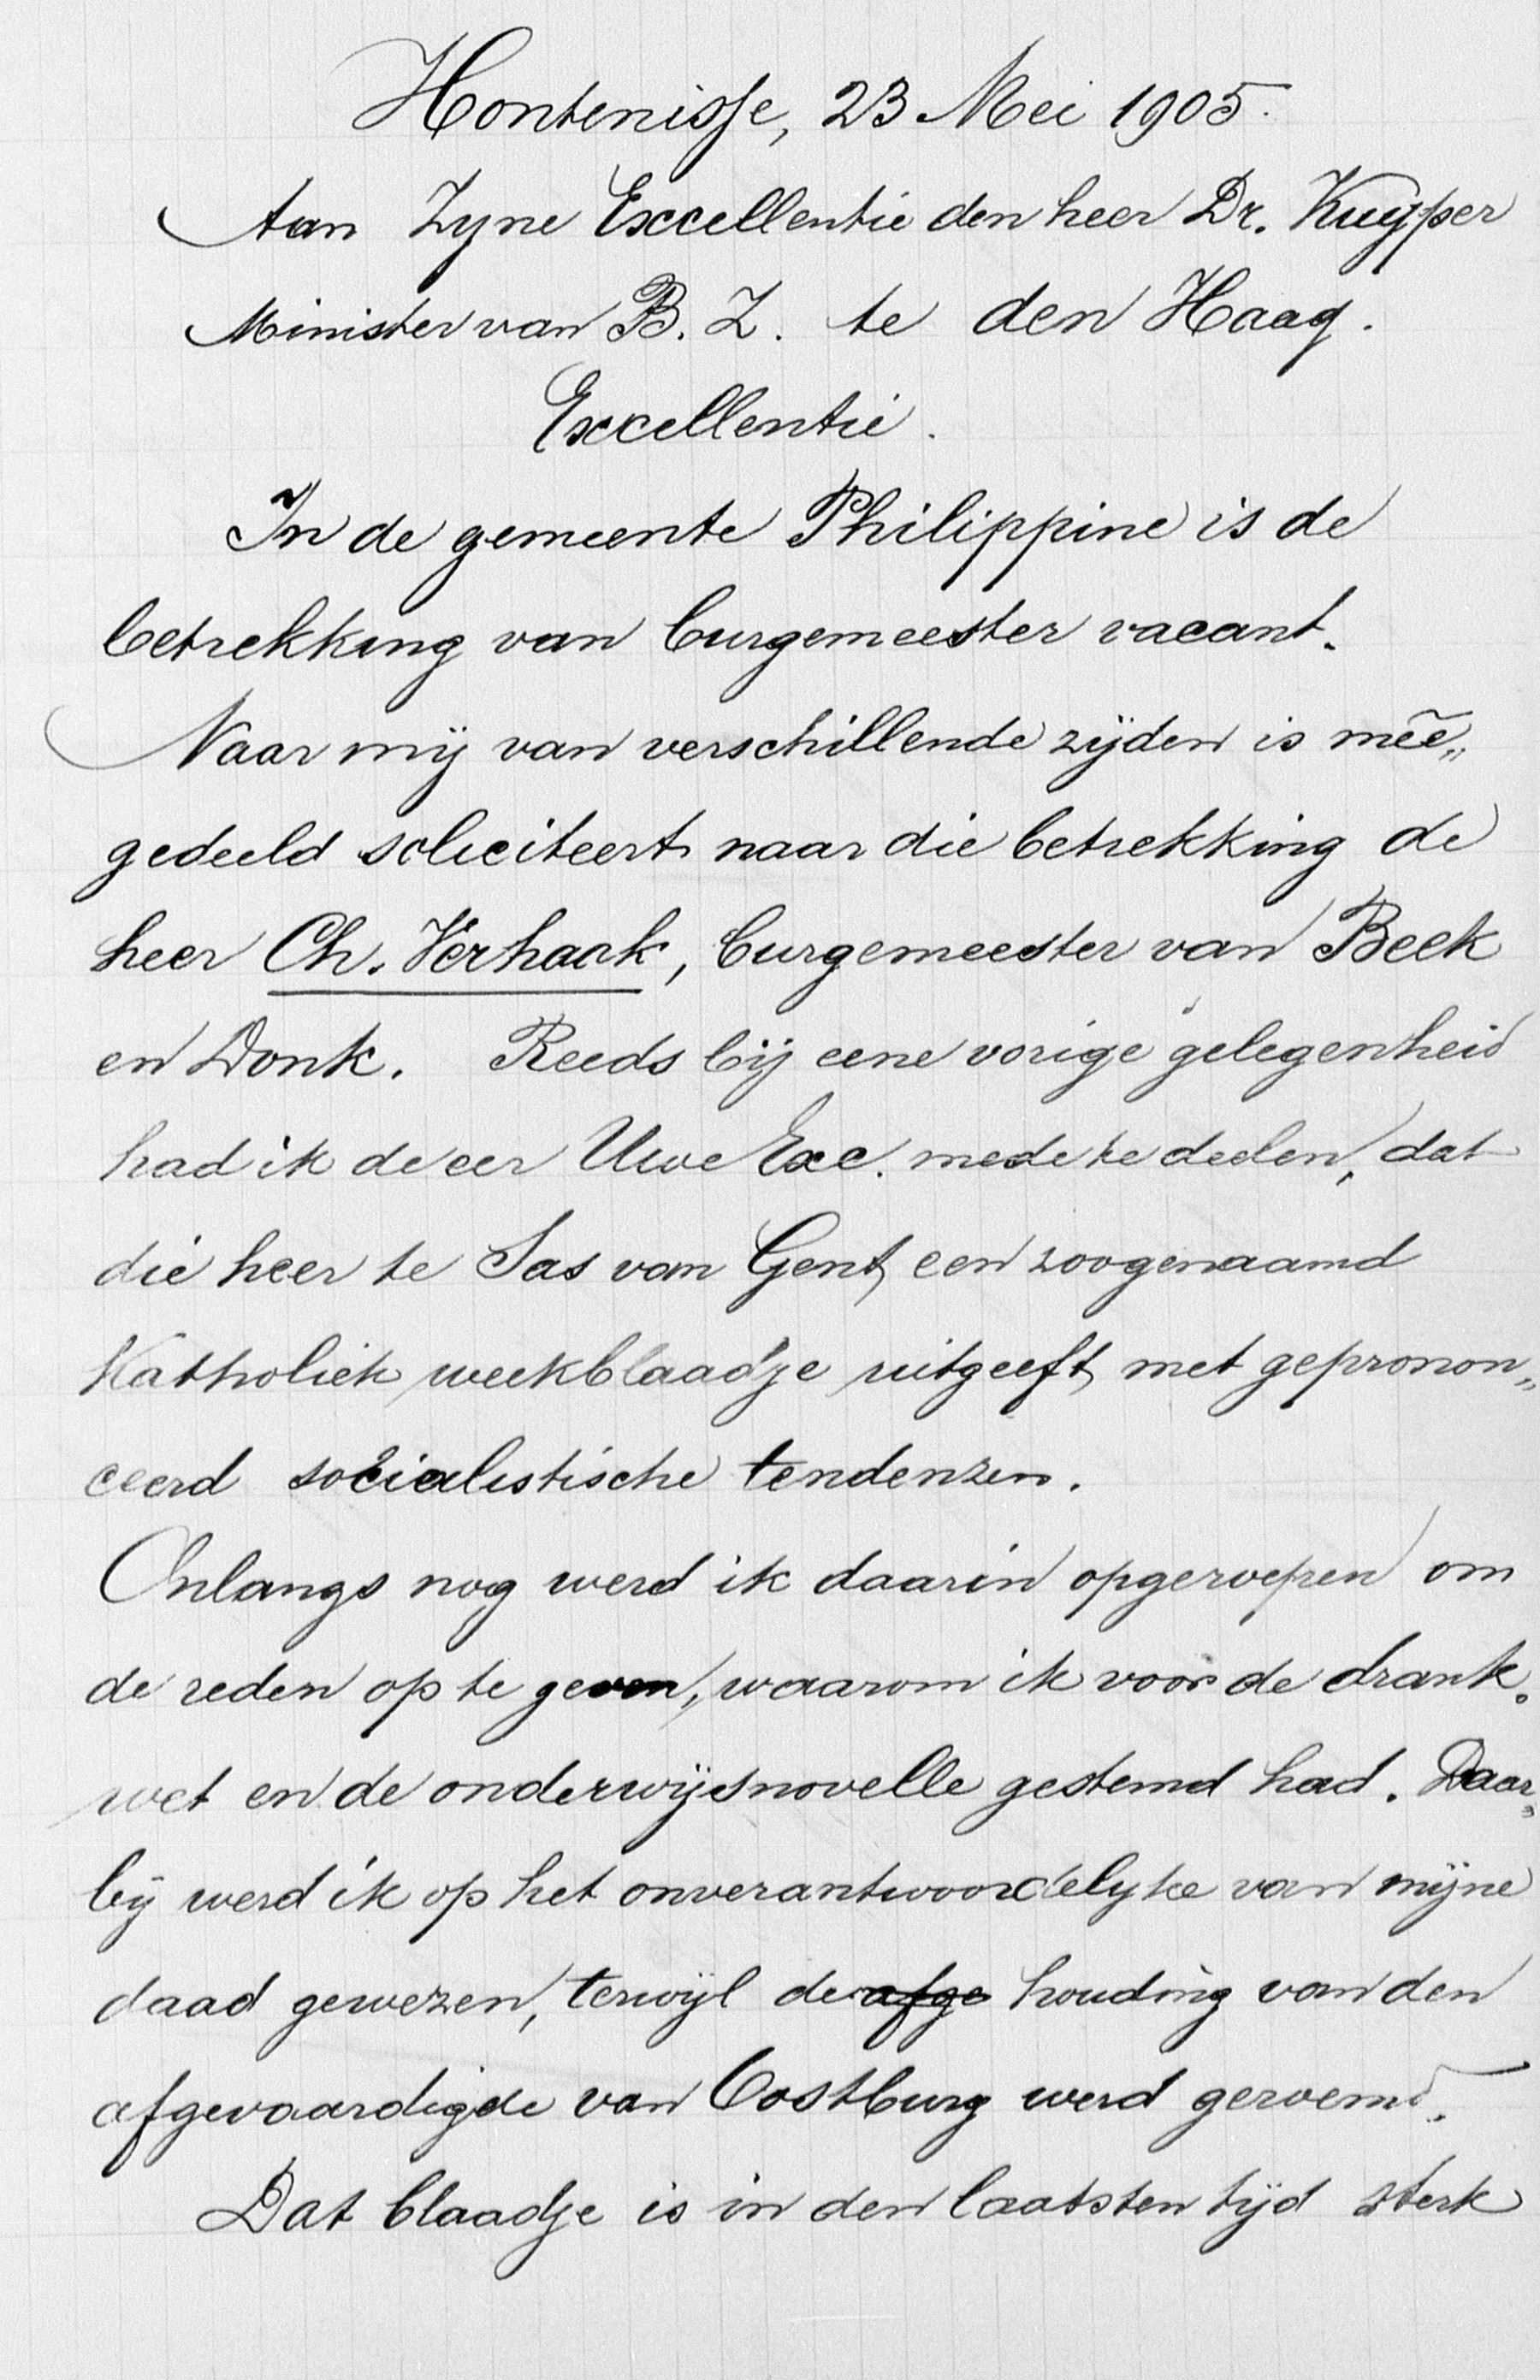 Hontenisse, 23 Mei 1905.
Aan Zyne Excellentie den heer Dr. Kuyper
Minister van B. Z. te den Haag.
Excellentie.
In de gemeente Philippine is de
betrekking van burgemeester vacant.
Naar mij van verschillende zijden is meê„
gedeeld soliciteert naar die betrekking de
heer Ch. Verhaak, burgemeester van Beek
en Donk. Reeds bij eene vorige gelegenheid
had ik de eer Uwe Exc. mede te deelen, dat
die heer te Sas van Gent, een zoogenaamd
Katholiek weekblaadje uitgeeft, met gepronon„
ceerd socialistische tendenzen.
Onlangs nog werd ik daarin opgeroepen om
de reden op te geven, waarom ik voor de drank„
wet en de onderwijsnovelle gestemd had. Daar„
bij werd ik op het onverantwoordelyke van mijne
daad gewezen, terwijl de afge houding van den
afgevaardigde van Oostburg werd geroemd.
Dat blaadje is in den laatsten tijd sterk